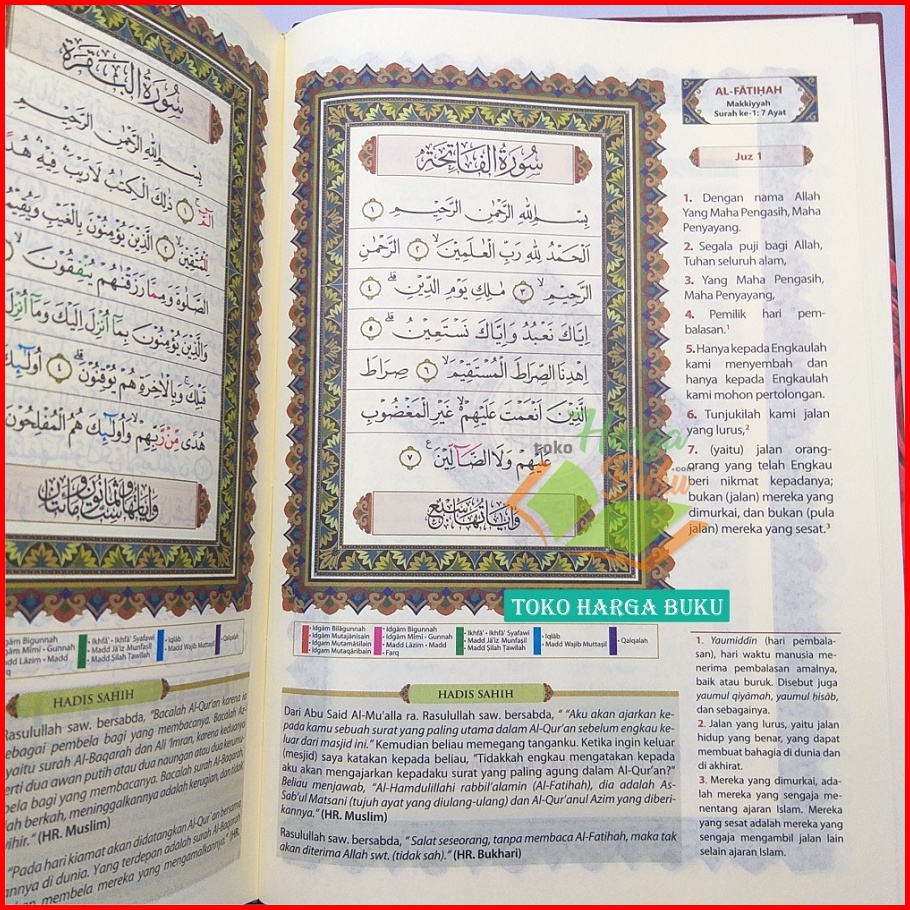 سُورَةُ الْفَاتِحَةِ
بِسْمِ اللّٰهِ الرَّحْمٰنِ الرَّحِيْمِ ۝١
اَلْحَمْدُ لِلّٰهِ رَبِّ الْعٰلَمِيْنَۙ ۝٢ الرَّحْمٰنِ
الرَّحِيْمِۙ ۝٣ مٰلِكِ يَوْمِ الدِّيْنِۗ ۝٤
اِيَّاكَ نَعْبُدُ وَاِيَّاكَ نَسْتَعِيْنُۗ ۝٥
اِهْدِنَا الصِّرَاطَ الْمُسْتَقِيْمَۙ ۝٦ صِرَاطَ
الَّذِيْنَ اَنْعَمْتَ عَلَيْهِمْ ەۙ غَيْرِ الْمَغْضُوْبِ
عَلَيْهِمْ وَلَا الضَّاۤلِّيْنَࣖ ۝٧
وَاٰيَاتُهَا سَبْعٌ
AL-FĀTIḤAH
Makkiyyah
Surah ke-1: 7 Ayat
Juz 1
1. Dengan nama Allah
Yang Maha Pengasih, Maha
Penyayang.
2. Segala puji bagi Allah,
Tuhan seluruh alam,
3. Yang Maha Pengasih,
Maha Penyayang,
4. Pemilik hari pem-
balasan.¹
5. Hanya kepada Engkaulah
kami menyembah dan
hanya kepada Engkaulah
kami mohon pertolongan.
6. Tunjukilah kami jalan
yang lurus,²
7. (yaitu) jalan orang-
orang yang telah Engkau
beri nikmat kepadanya;
bukan (jalan) mereka yang
dimurkai, dan bukan (pula
jalan) mereka yang sesat.³
1. Yaumiddin (hari pembala-
san), hari waktu manusia me-
nerima pembalasan amalnya,
baik atau buruk. Disebut juga
yaumul qiyāmah, yaumul ḥisāb,
dan sebagainya.
2. Jalan yang lurus, yaitu jalan
hidup yang benar, yang dapat
membuat bahagia di dunia dan
di akhirat.
3. Mereka yang dimurkai, ada-
lah mereka yang sengaja me-
nentang ajaran Islam. Mereka
yang sesat adalah mereka yang
sengaja mengambil jalan lain
selain ajaran Islam.
• Idgām Bilāgunnah • Idgām Bigunnah • Ikhfā' - Ikhfā' Syafawi • Iqlāb • Qalqalah
• Idgām Mutajānisain • Idgām Mimī - Gunnah • Madd Jā'iz Munfaṣil • Madd Wajib Muttaṣil
• Idgām Mutamāṡilain • Madd Lāzim - Madd • Madd Ṣilah Ṭawilah
• Idgām Mutaqāribain Farq
HADIS SAHIH
Dari Abu Said Al-Mu'alla ra. Rasulullah saw. bersabda, " "Aku akan ajarkan ke-
pada kamu sebuah surat yang paling utama dalam Al-Qur'an sebelum engkau ke-
luar dari masjid ini." Kemudian beliau memegang tanganku. Ketika ingin keluar
(mesjid) saya katakan kepada beliau, "Tidakkah engkau mengatakan kepada
aku akan mengajarkan kepadaku surat yang paling agung dalam Al-Qur'an?"
Beliau menjawab, "Al-Hamdulillahi rabbil'alamin (Al-Fatihah), dia adalah As-
Sab'ul Matsani (tujuh ayat yang diulang-ulang) dan Al-Qur'anul Azim yang diberi-
kannya." (HR. Muslim)
Rasulullah saw. bersabda, "Salat seseorang, tanpa membaca Al-Fatihah, maka tak
akan diterima Allah swt. (tidak sah)." (HR. Bukhari)
سُورَةُ الْبَقَرَةِ
بِسْمِ اللّٰهِ الرَّحْمٰنِ الرَّحِيْمِ
الۤمّۤۚ ۝١ ذٰلِكَ الْكِتٰبُ لَا رَيْبَۛ فِيْهِۛ هُدًى
لِّلْمُتَّقِيْنَۙ ۝٢ الَّذِيْنَ يُؤْمِنُوْنَ بِالْغَيْبِ وَيُقِيْمُوْنَ
الصَّلٰوةَ وَمِمَّا رَزَقْنٰهُمْ يُنْفِقُوْنَۙ
وَالَّذِيْنَ يُؤْمِنُوْنَ بِمَآ اُنْزِلَ اِلَيْكَ وَمَآ اُنْزِلَ
قَبْلِكَۚ وَبِالْاٰخِرَةِ هُمْ يُوْقِنُوْنَۗ ۝٤ اُولٰۤىِٕكَ
هُدًى مِّنْ رَّبِّهِمْۙ وَاُولٰۤىِٕكَ هُمُ الْمُفْلِحُوْنَ
وَاٰيَاتُهَا سِتٌّ وَثَمَانُوْنَ وَمِائَتَانِ
HADIS SAHIH
Rasulullah saw. bersabda, "Bacalah Al-Qur'an karena ia
sebagai pembela bagi yang membacanya. Bacalah Az-
yaitu surah Al-Baqarah dan Ali 'Imran, karena keduanya
perti dua awan putih atau dua naungan atau dua
bela bagi yang membacanya. Bacalah surah Al-Baqarah,
lah berkah, meninggalkannya adalah kerugian, dan tidak
(HR. Muslim)
"Pada hari kiamat akan didatangkan Al-Qur'an bersama
di dunia. Yang terdepan adalah surah Al-Baqarah
membela mereka yang mengamalkannya." (HR.
toko Harga Buku .com
TOKO HARGA BUKU